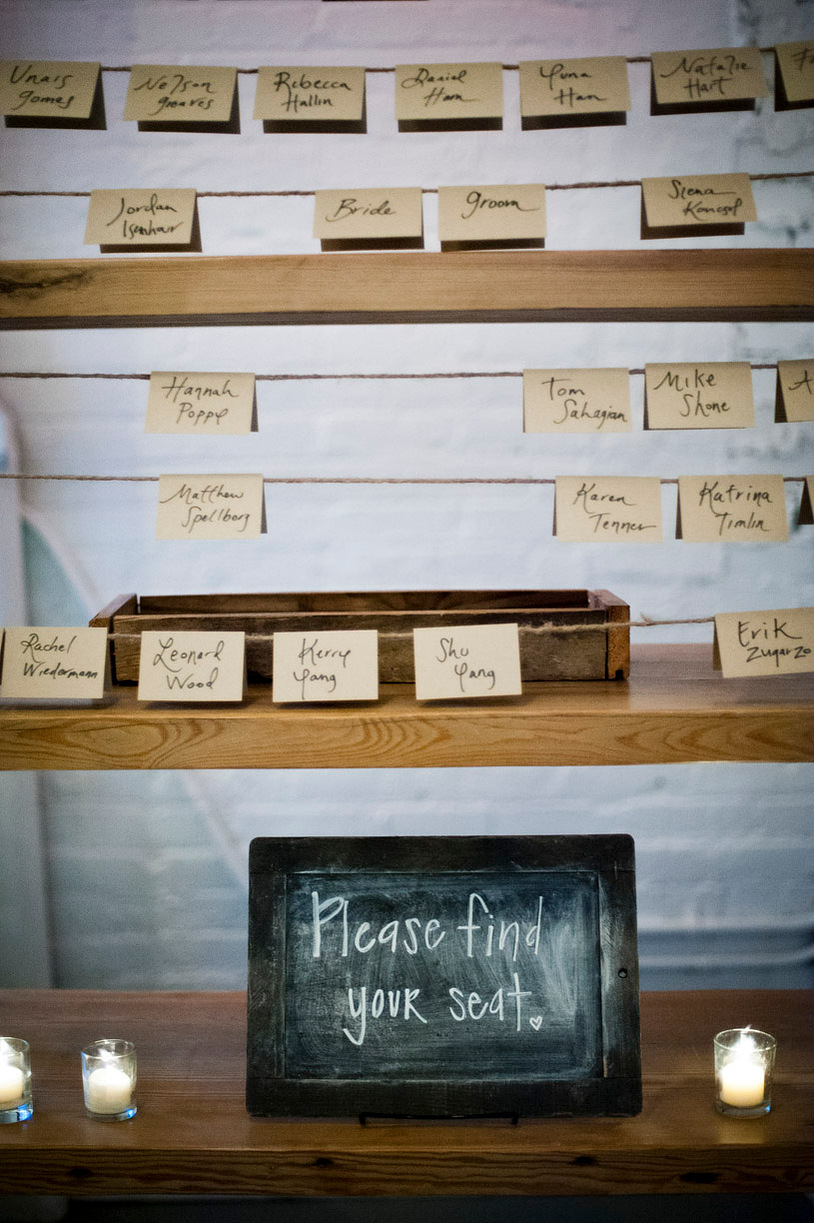 Unais
Gomes
Nelson
Greaves
Rebecca
Hallin
Daniel
Ham
Yuna
Han
Natalie
Hart
F
Jordan
Isenhour
Bride
groom
Siena
Hannah
Poppe
Tom
Sahagian
Mike
Shone
A
Matthew
Spellberg
Karen
Tenner
Katrina
Timlin
Rachel
Wiedermann
Leonard
Wood
Kerry
Yang
Shu
Yang
Erik
Zugarzo
Please find
your seat.♡